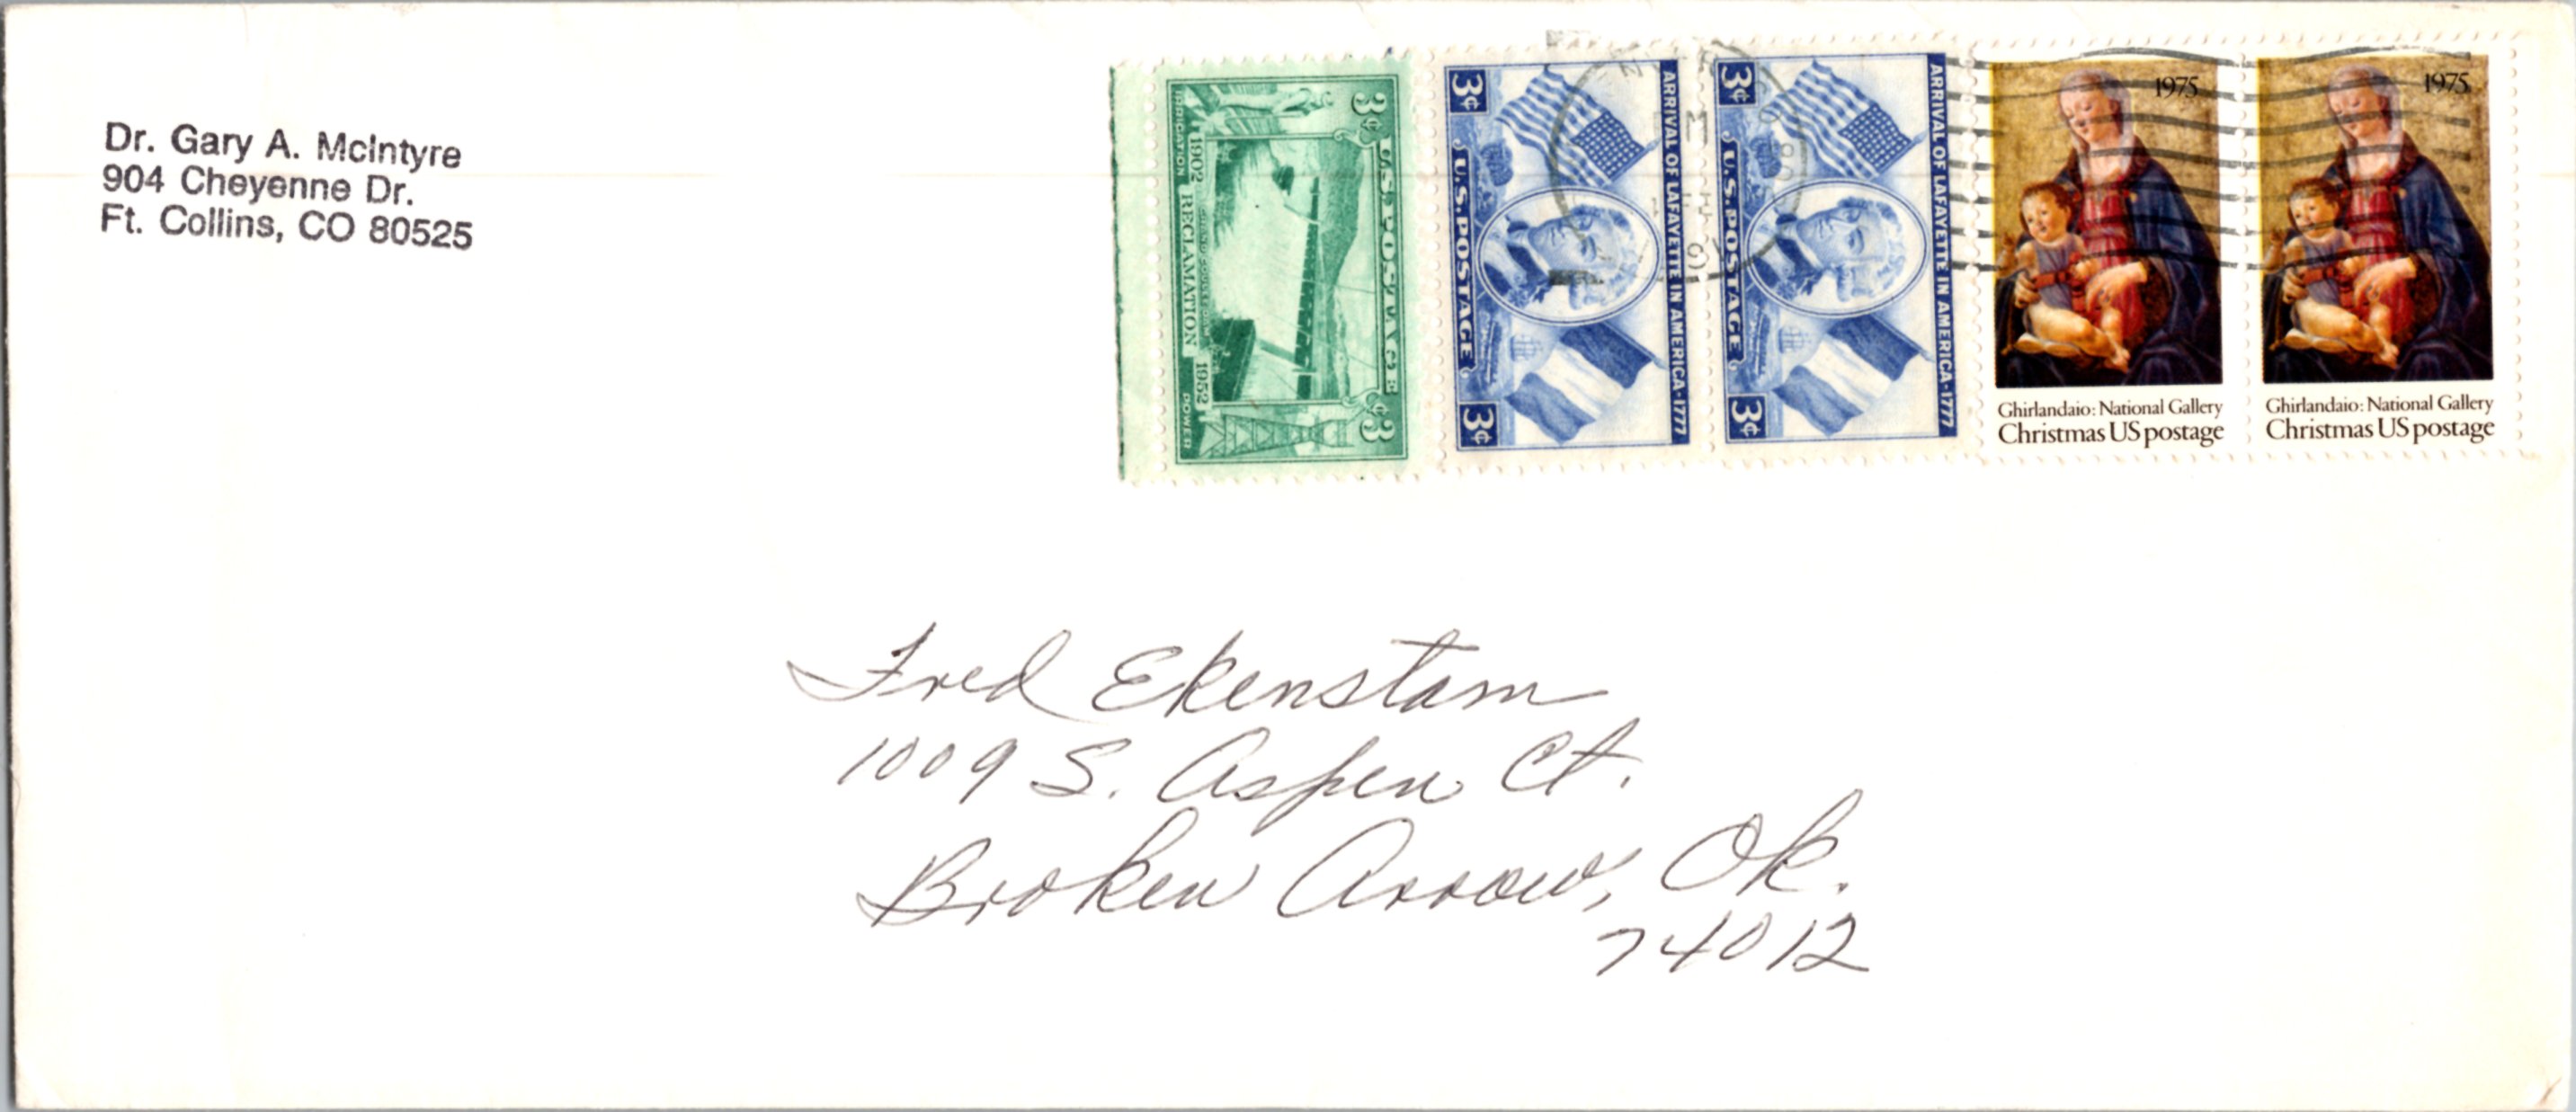 Dr. Gary A. McIntyre
904 Cheyenne Dr.
Ft. Collins, CO 80525
3¢
U.S. POSTAGE
3¢
1902 RECLAMATION 1952
IRRIGATION
POWER
3¢
U.S. POSTAGE
3¢
ARRIVAL OF LAFAYETTE IN AMERICA·1777
3¢
U.S. POSTAGE
3¢
ARRIVAL OF LAFAYETTE IN AMERICA·1777
1975
Ghirlandaio: National Gallery
Christmas US postage
1975
Ghirlandaio: National Gallery
Christmas US postage
Fred Ekenstam
1009 S. Aspen Ct.
Broken Arrow, Ok.
74012